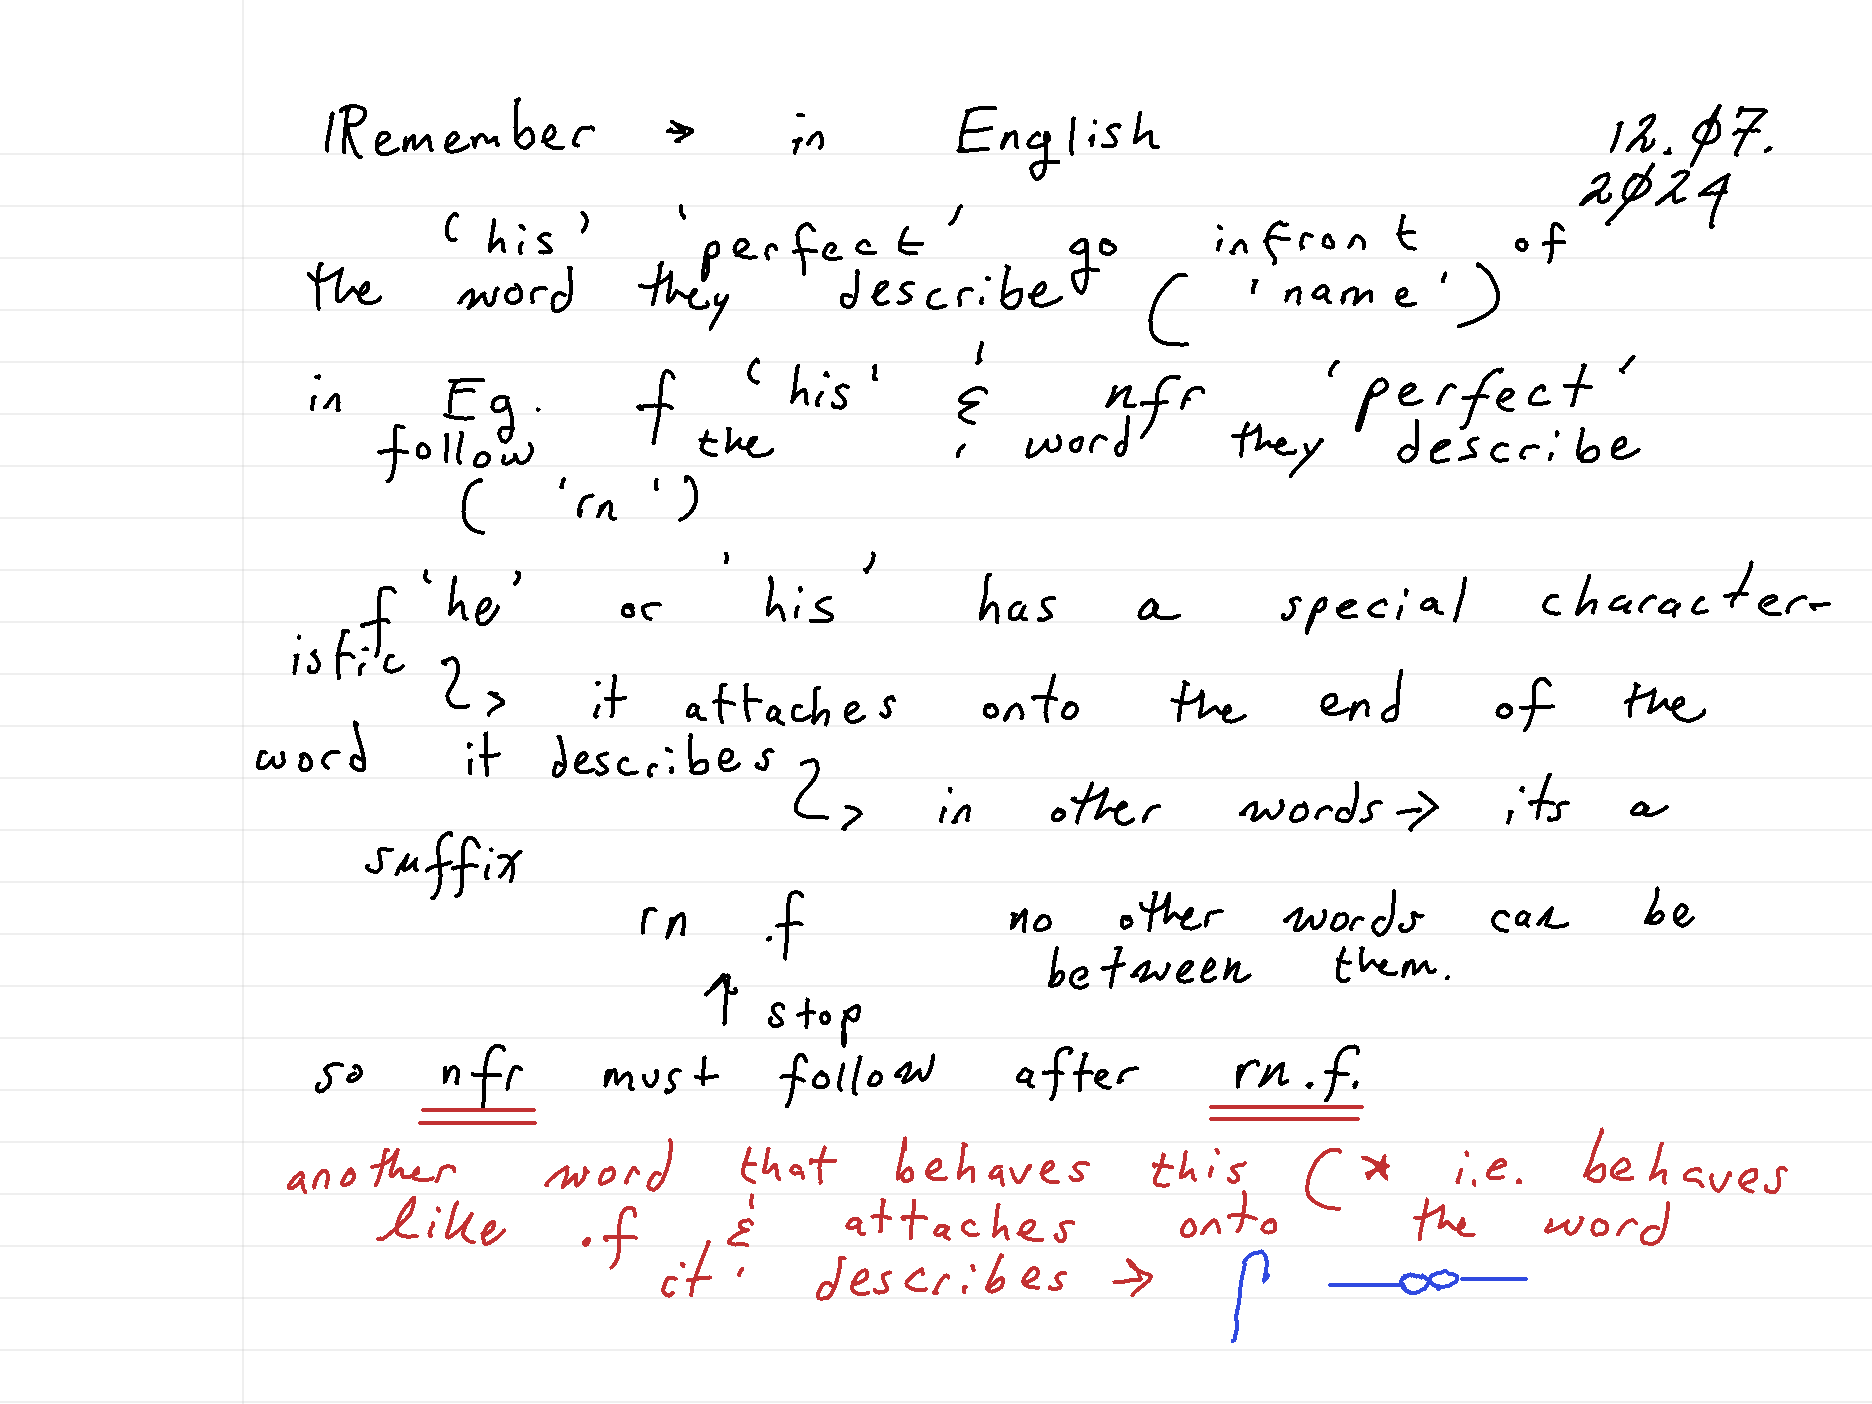 Remember → in English 12.07.
2024
'his' 'perfect' go infront of
the word they describe ('name')
in Eg. f 'his' & nfr 'perfect'
follow the word they describe
('rn')
f 'he' or 'his' has a special character-
istic
↳ it attaches onto the end of the
word it describes
↳ in other words → its a
suffix
rn .f no other words can be
between them.
↑ stop
so nfr must follow after rn.f.
another word that behaves this (* i.e. behaves
like .f & attaches onto the word
it describes →